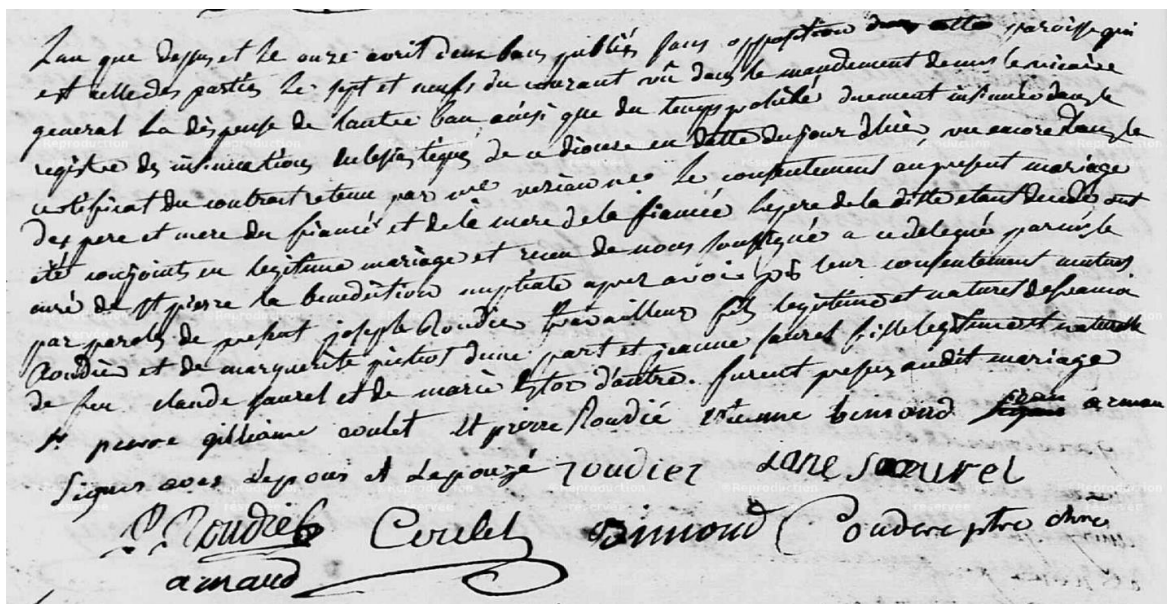 L'an que dessus et le onze avril deux bans publiés sans opposition dans cette paroisse qui
est celle des parties le sept et neuf du courant vû dans le mandement de mr le vicaire
general la dispense de l'autre ban ainsi que du temps prohibé duement insinuée dans le
registre des insinuations eclesiastiques de ce diocese en datte du jour d'hier vu encore dans le
certificat du contrat retenu par me le consentement au present mariage
des pere et mere du fiancé et de la mere de la fiancée le pere de la ditte etant decedé ont
été conjoints en legitime mariage et recu de nous soussigné a ce delegué par mr le
curé de St pierre la benediction nuptiale apres avoir leur consentement mutuel
par paroles de present joseph Roudier travailleur fils legitime et naturel de francois
Roudier et de marguerite d'une part et jeanne saurel fille legitime et naturelle
de feu claude saurel et de marie d'autre. furent presens audit mariage
Srs pierre gilliaume coulet et pierre Roudié etienne bimond jean arman
signes avec lepous et lepouzé roudier Jane Saeurel
P. Roudier Coulet Bimond ptre
arnaud